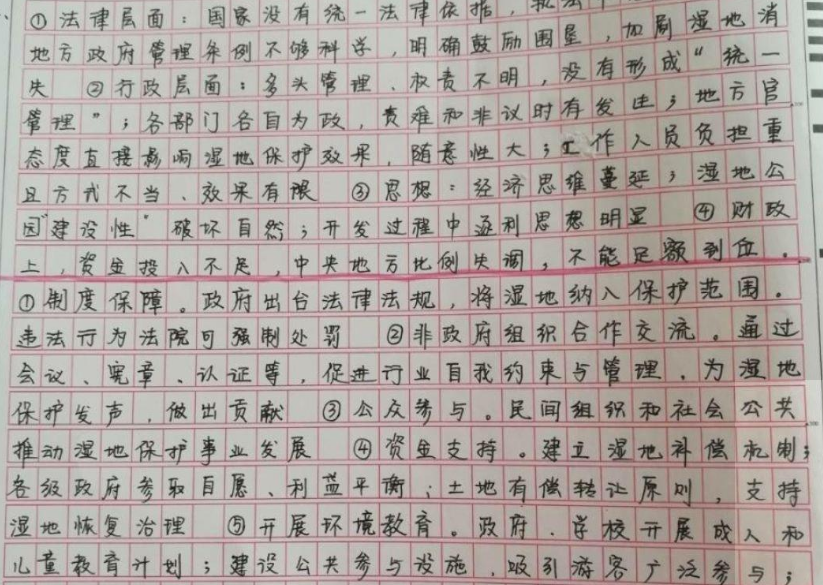 ①法律层面：国家没有统一法律依据，执法
地方政府管理条例不够科学，明确鼓励围垦，加剧湿地消
失 ②行政层面：多头管理、权责不明，没有形成“统一
管理”；各部门各自为政，责难和非议时有发生；地方官
态度直接影响湿地保护效果，随意性大；工作人员负担重
且方式不当、效果有限 ③思想：经济思维蔓延；湿地公
园“建设性”破坏自然；开发过程中逐利思想明显 ④财政
上，资金投入不足，中央地方比例失调，不能足额到位。
①制度保障。政府出台法律法规，将湿地纳入保护范围。
违法行为法院可强制处罚 ②非政府组织合作交流。通过
会议、宪章、认证等，促进行业自我约束与管理，为湿地
保护发声，做出贡献 ③公众参与。民间组织和社会公共
推动湿地保护事业发展 ④资金支持。建立湿地补偿机制；
各级政府参取自愿、利益平衡；土地有偿转让原则，支持
湿地恢复治理 ⑤开展环境教育。政府、学校开展成人和
儿童教育计划；建设公共参与设施，吸引游客广泛参与；